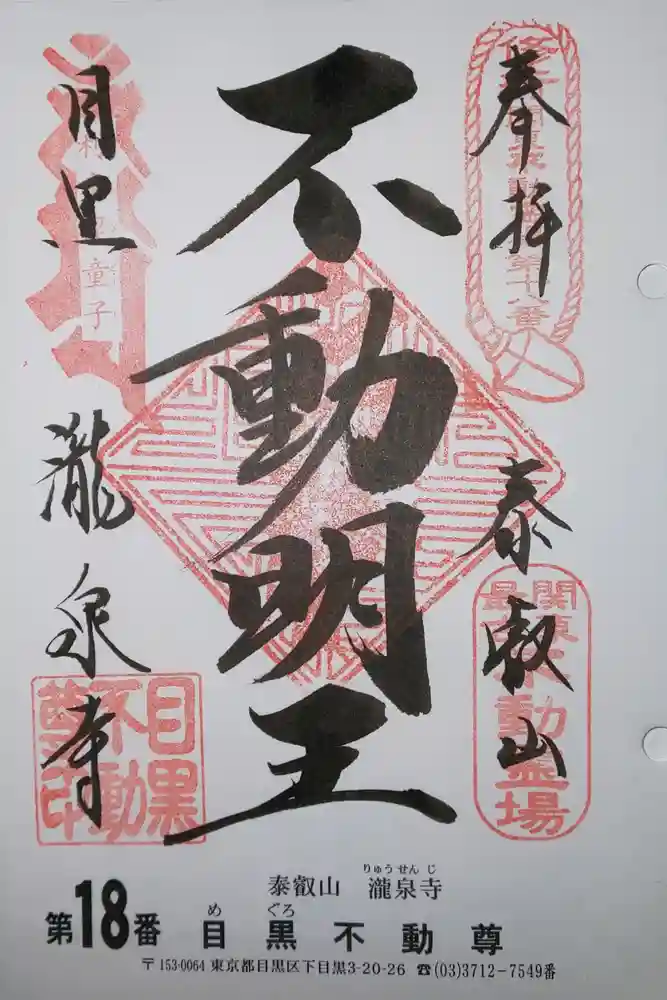 奉拝
泰叡山
不動明王
目黒
瀧泉寺
関東
最
不動霊場
目黒
不動
尊
童子
泰叡山 瀧泉寺
りゅうせんじ
第18番 目黒不動尊
め ぐろ
〒153-0064 東京都目黒区下目黒3-20-26 ☎(03)3712-7549番